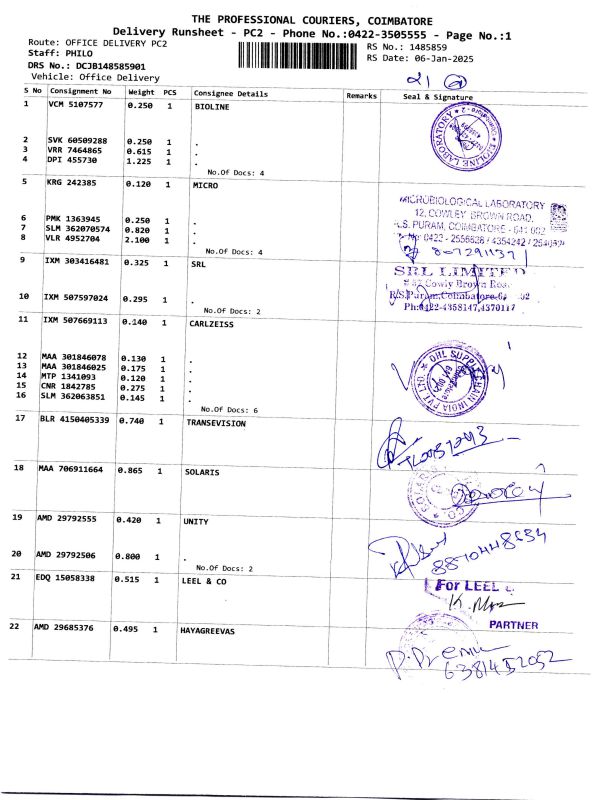 THE PROFESSIONAL COURIERS, COIMBATORE
Delivery Runsheet - PC2 - Phone No.:0422-3505555 - Page No.:1
Route: OFFICE DELIVERY PC2
RS No.: 1485859
Staff: PHILO
RS Date: 06-Jan-2025
DRS No.: DCJB148585901
Vehicle: Office Delivery
S No Consignment No Weight PCS Consignee Details Remarks Seal & Signature
1 VCM 5107577 0.250 1 BIOLINE
2 SVK 60509288 0.250 1 .
3 VRR 7464865 0.615 1 .
4 DPI 455730 1.225 1 .
No.Of Docs: 4
5 KRG 242385 0.120 1 MICRO
MICROBIOLOGICAL LABORATORY
12, COWLEY BROWN ROAD,
6 PMK 1363945 0.250 1 .
R.S. PURAM, COIMBATORE - 641 002
7 SLM 362070574 0.820 1 .
8 VLR 4952704 2.100 1 .
No.Of Docs: 4
9 IXM 303416481 0.325 1 SRL
SRL LIMITED
Cowly Brown Road
10 IXM 507597024 0.295 1 .
R.S.Puram,Coimbatore-
No.Of Docs: 2
Ph:0422-4358147,4370117
11 IXM 507669113 0.140 1 CARLZEISS
12 MAA 301846078 0.130 1 .
13 MAA 301846025 0.175 1 .
14 MTP 1341093 0.120 1 .
15 CNR 1842785 0.275 1 .
16 SLM 362063851 0.145 1 .
DHL SUPPLY CHAIN INDIA PVT LTD.
No.Of Docs: 6
17 BLR 4150405339 0.740 1 TRANSEVISION
18 MAA 706911664 0.865 1 SOLARIS
19 AMD 29792555 0.420 1 UNITY
20 AMD 29792506 0.800 1 .
No.Of Docs: 2
8870448634
21 EDQ 15058338 0.515 1 LEEL & CO
For LEEL
PARTNER
22 AMD 29685376 0.495 1 HAYAGREEVAS
P. Prem
6381452052